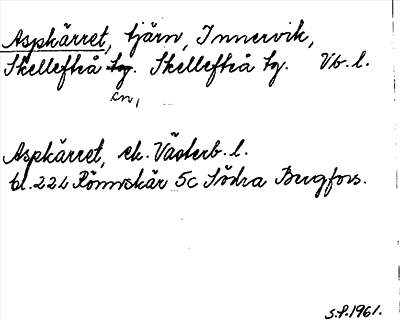 Aspkärret, tjärn, Innervik,
Skellefteå sn, Skellefteå tg. Vb. l.
Aspkärret, ek. Västerb. l.
bl. 22 L Rönnskär 5c Södra Bergfors.
S.P. 1961.